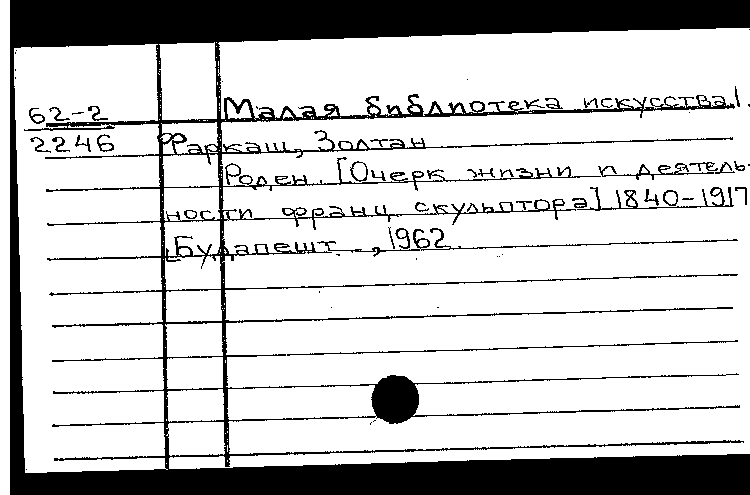 62-2
2246
Малая библиотека искусства/.
Фаркаш, Золтан
Роден. [Очерк жизни и деятель-
ности франц. скульптора] 1840-1917
Будапешт. -, 1962.